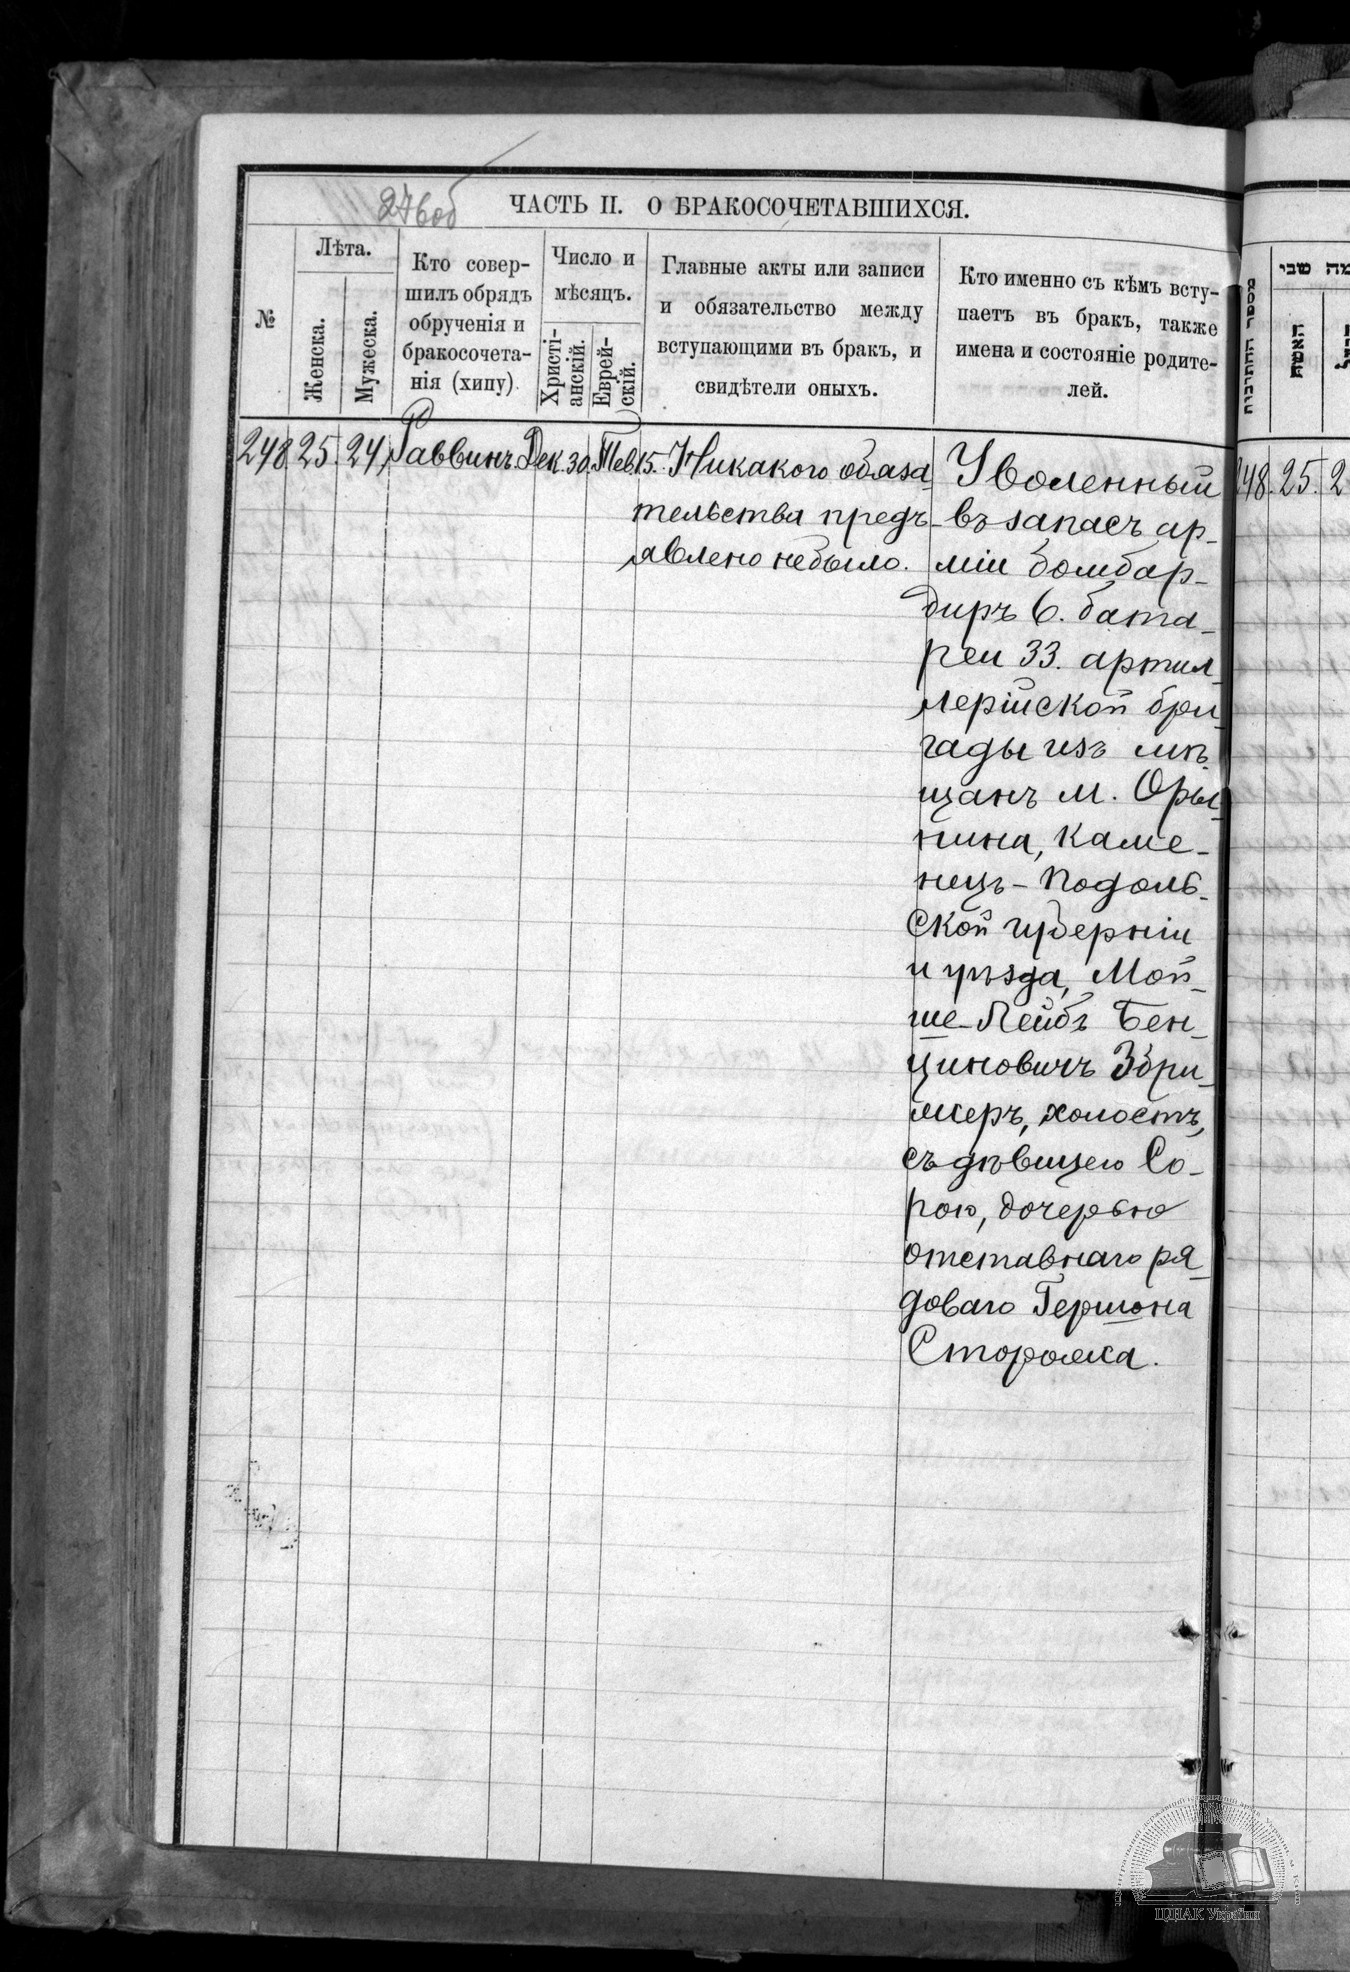 276об
ЧАСТЬ II. О БРАКОСОЧЕТАВШИХСЯ.
№
Лѣта.
Женска.
Мужеска.
Кто совер-
шилъ обрядъ
обрученія и
бракосочета-
нія (хипу)
Число и
мѣсяцъ.
Христі-
анскій.
Еврей-
скій.
Главные акты или записи
и обязательство между
вступающими въ бракъ, и
свидѣтели оныхъ.
Кто именно съ кѣмъ всту-
паетъ въ бракъ, также
имена и состояніе родите-
лей.
248. 25. 24. Раввинъ. Дек. 30. Тев. 15. Никакого обяза-
тельства предъ-
явлено не было.
Уволенный
въ запасъ ар-
міи бомбар-
диръ 6. бата-
реи 33. артил-
лерійской бри-
гады изъ мѣ-
щанъ м. Оры-
нина, Каме-
нецъ-Подоль-
ской губерніи
и уѣзда, Мой-
ше-Лейбъ Бен-
ціновичъ Збри-
жеръ, холостъ,
съ дѣвицею Со-
рою, дочерью
отставнаго ря-
доваго Гершона
Сторожка.
שבי
248. 25. 2
ЦДІАК України